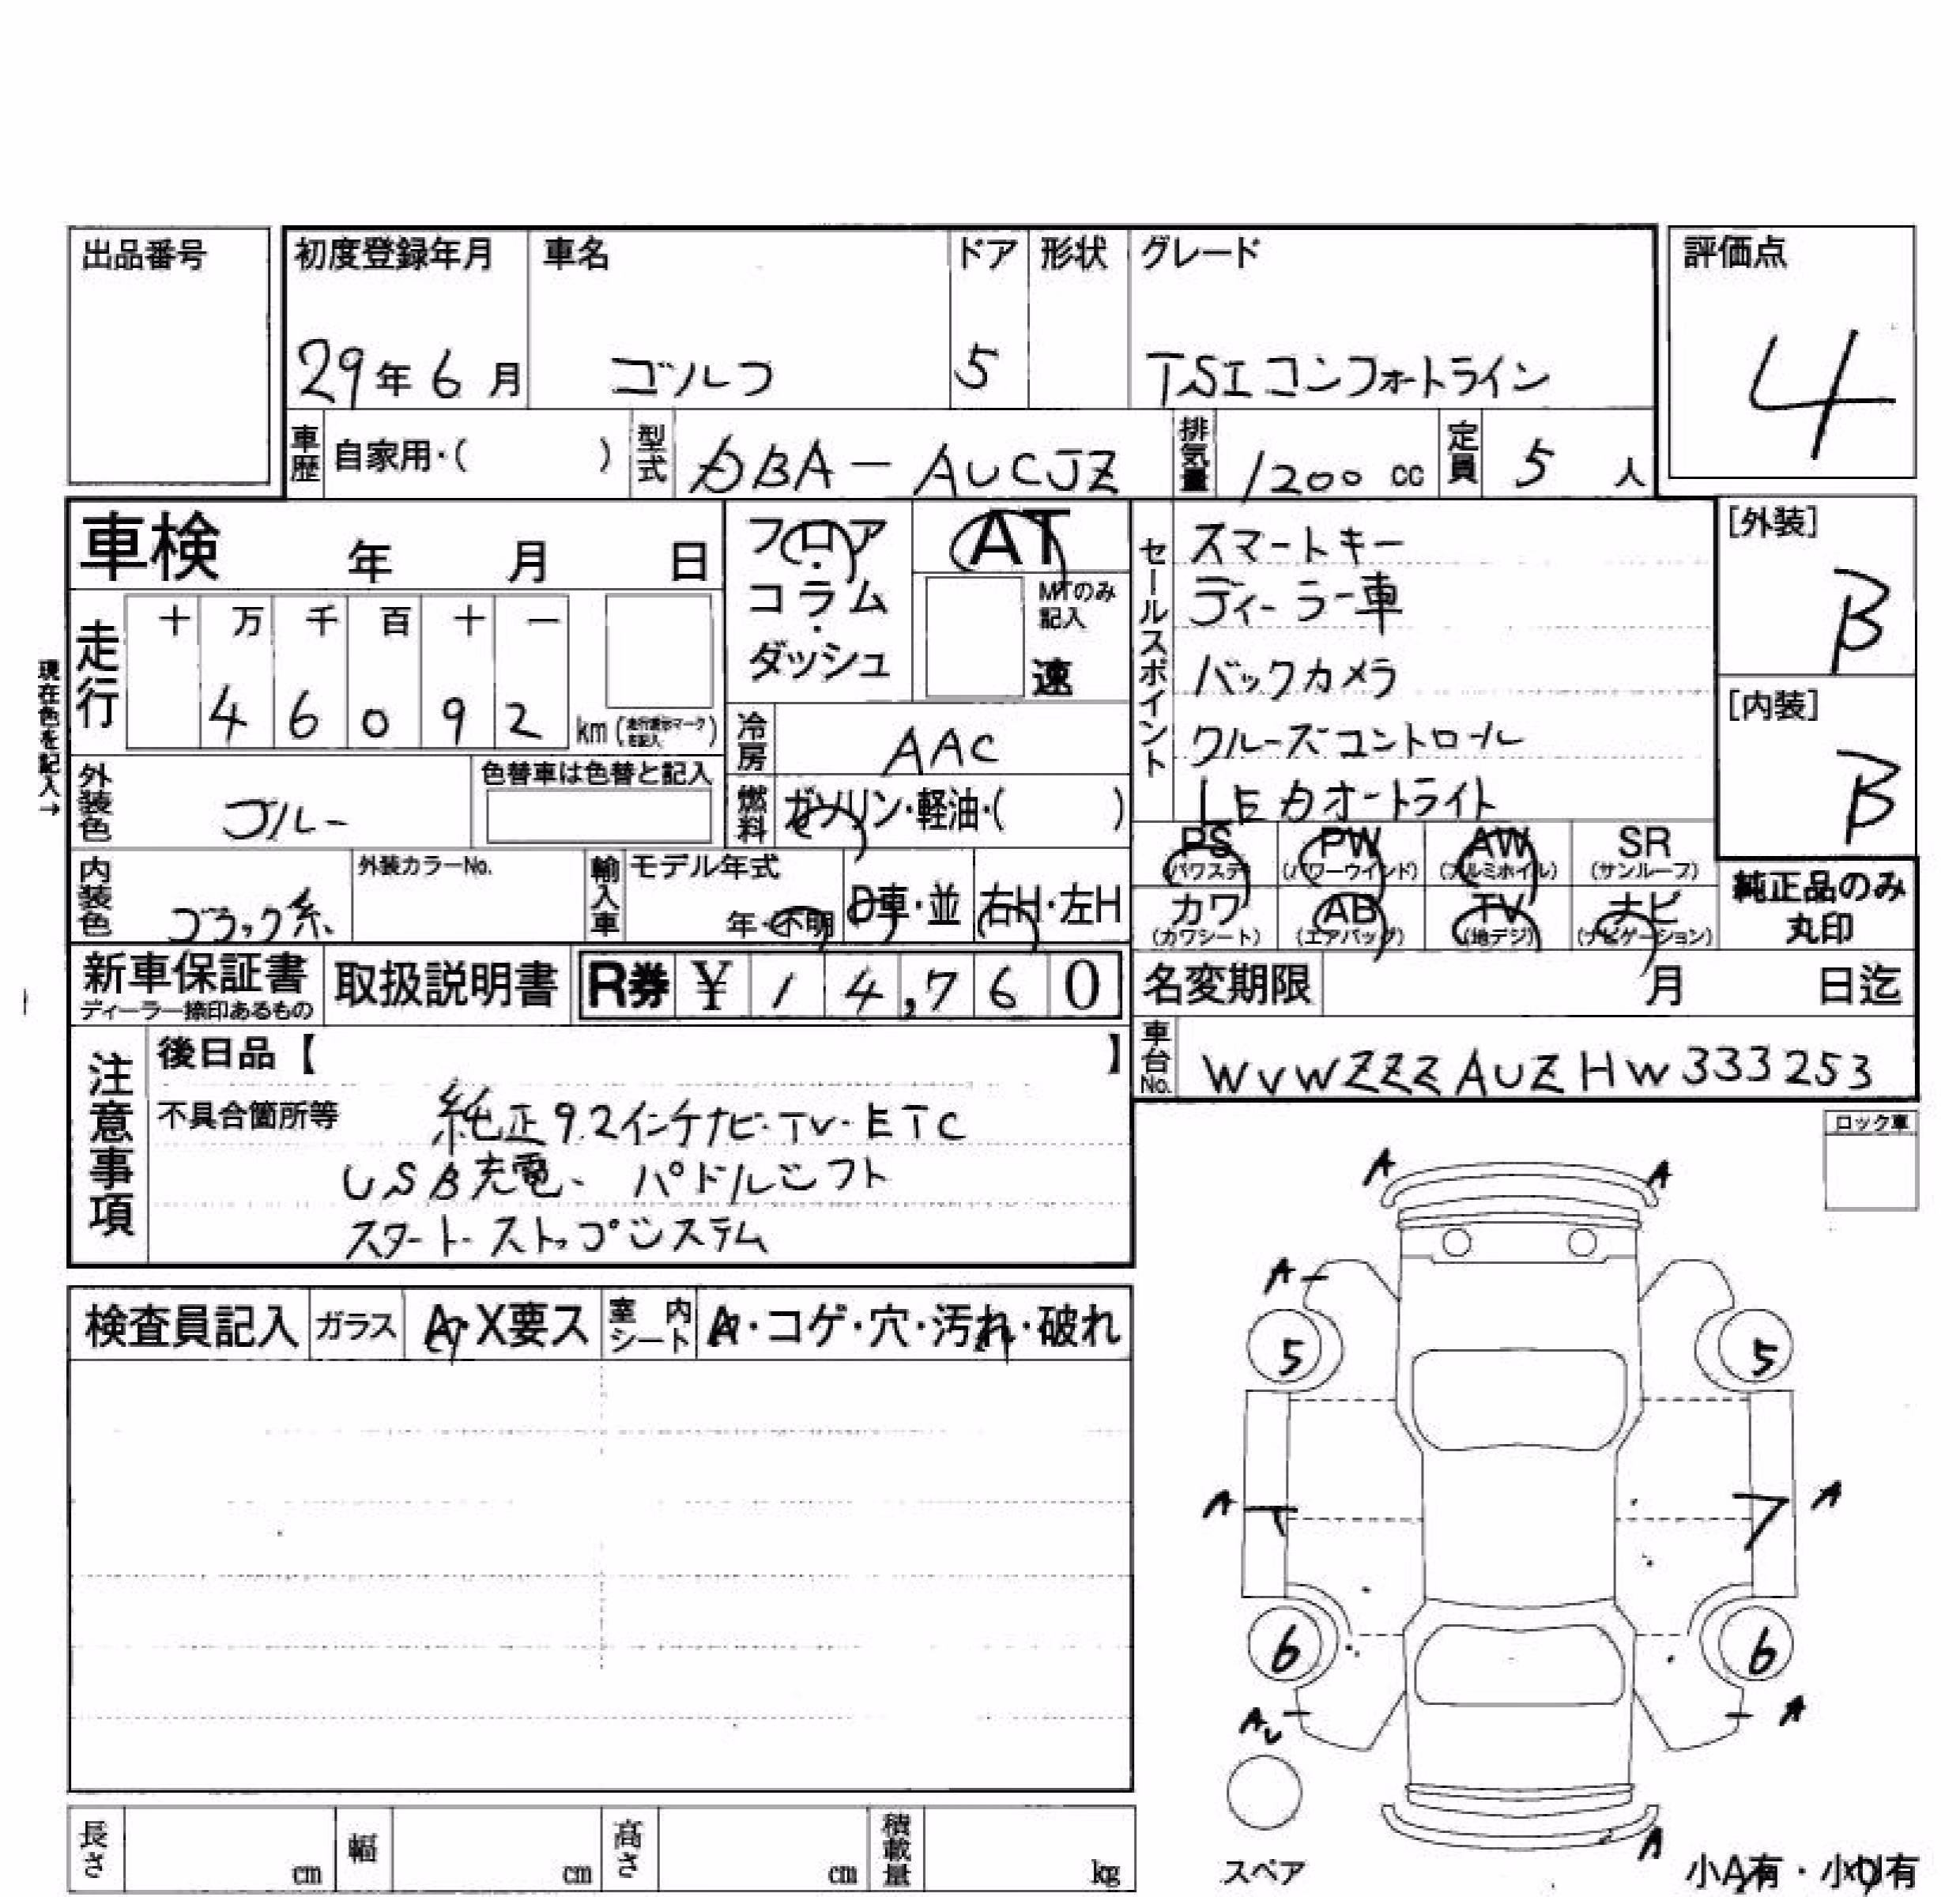 出品番号
初度登録年月 車名 ドア 形状 グレード
評価点
29年6月 ゴルフ 5 TSIコンフォートライン
4
車歴 自家用・( ) 型式 DBA-AUCJZ 排気量 1200 cc 定員 5 人
車検 年 月 日
フロア・コラム・ダッシュ
AT
MTのみ記入
速
セールスポイント
スマートキー
ディーラー車
バックカメラ
クルーズコントロール
LEDオートライト
[外装]
B
[内装]
B
現在色を記入→
走行 十 万 千 百 十 一
4 6 0 9 2 km (走行疑義マークを記入)
冷房 AAC
外装色 ブルー 色替車は色替と記入
燃料 ガソリン・軽油・( )
PS (パワステ) PW (パワーウインド) AW (アルミホイル) SR (サンルーフ)
カワ (カワシート) AB (エアバッグ) TV (地デジ) ナビ (ナビゲーション)
純正品のみ
丸印
内装色 ブラック系 外装カラーNo. 輸入車 モデル年式 年・不明 D車・並 右H・左H
新車保証書 ディーラー捺印あるもの 取扱説明書 R券 ¥ 1 4,7 6 0
名変期限 月 日迄
車台No. WVWZZZAUZHW333253
注意事項
後日品【 】
不具合箇所等 純正9.2インチナビ・TV・ETC
USB充電、パドルシフト
スタート・ストップシステム
ロック車
検査員記入 ガラス A・X要ス 室内シート A・コゲ・穴・汚れ・破れ
A A
A
5 5
A A
6 6
A A
A
スペア
小A有・小U有
長さ cm 幅 cm 高さ cm 積載量 kg